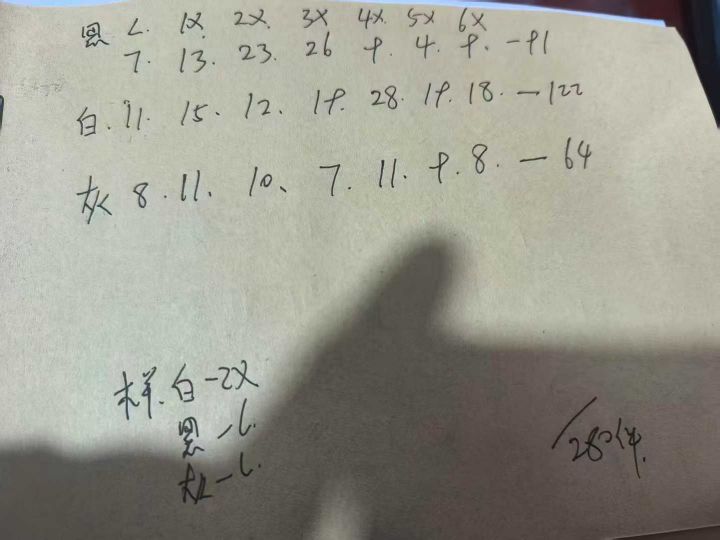 黑 L. 1X. 2X. 3X 4X. 5X 6X
7. 13. 23. 26 9. 4. 9. - 91
白. 11. 15. 12. 19. 28. 19. 18. - 122
灰 8. 11. 10、 7. 11. 9. 8. - 64
样. 白 - 2X
黑 - L.
灰 - L.
280件.